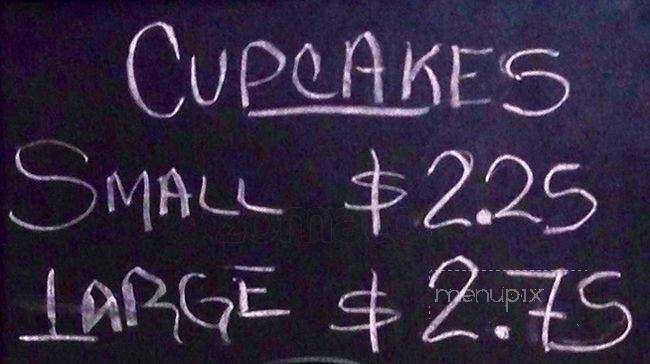 CUPCAKES
SMALL $2.25
LARGE $2.75
menupix